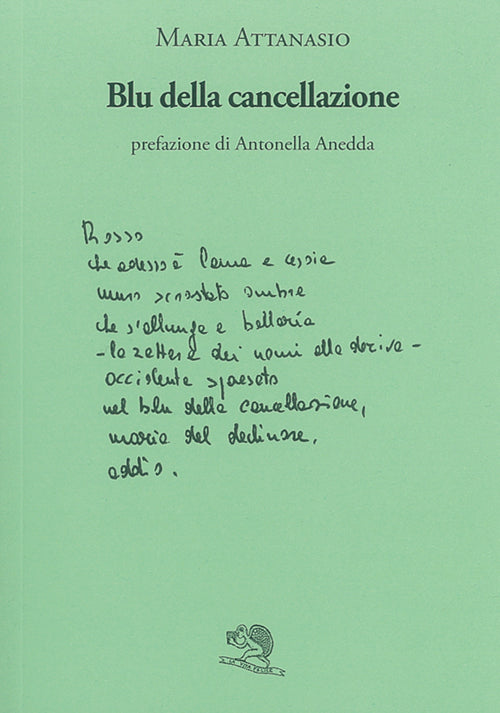 MARIA ATTANASIO
Blu della cancellazione
prefazione di Antonella Anedda
Rosso
che adesso è lama e cesoia
muro scrostato ombre
che s'allunga e
- la zattera dei nomi alla deriva -
occidente spaesato
nel blu della cancellazione,
maria del declinare,
addio.
LA VITA FELICE